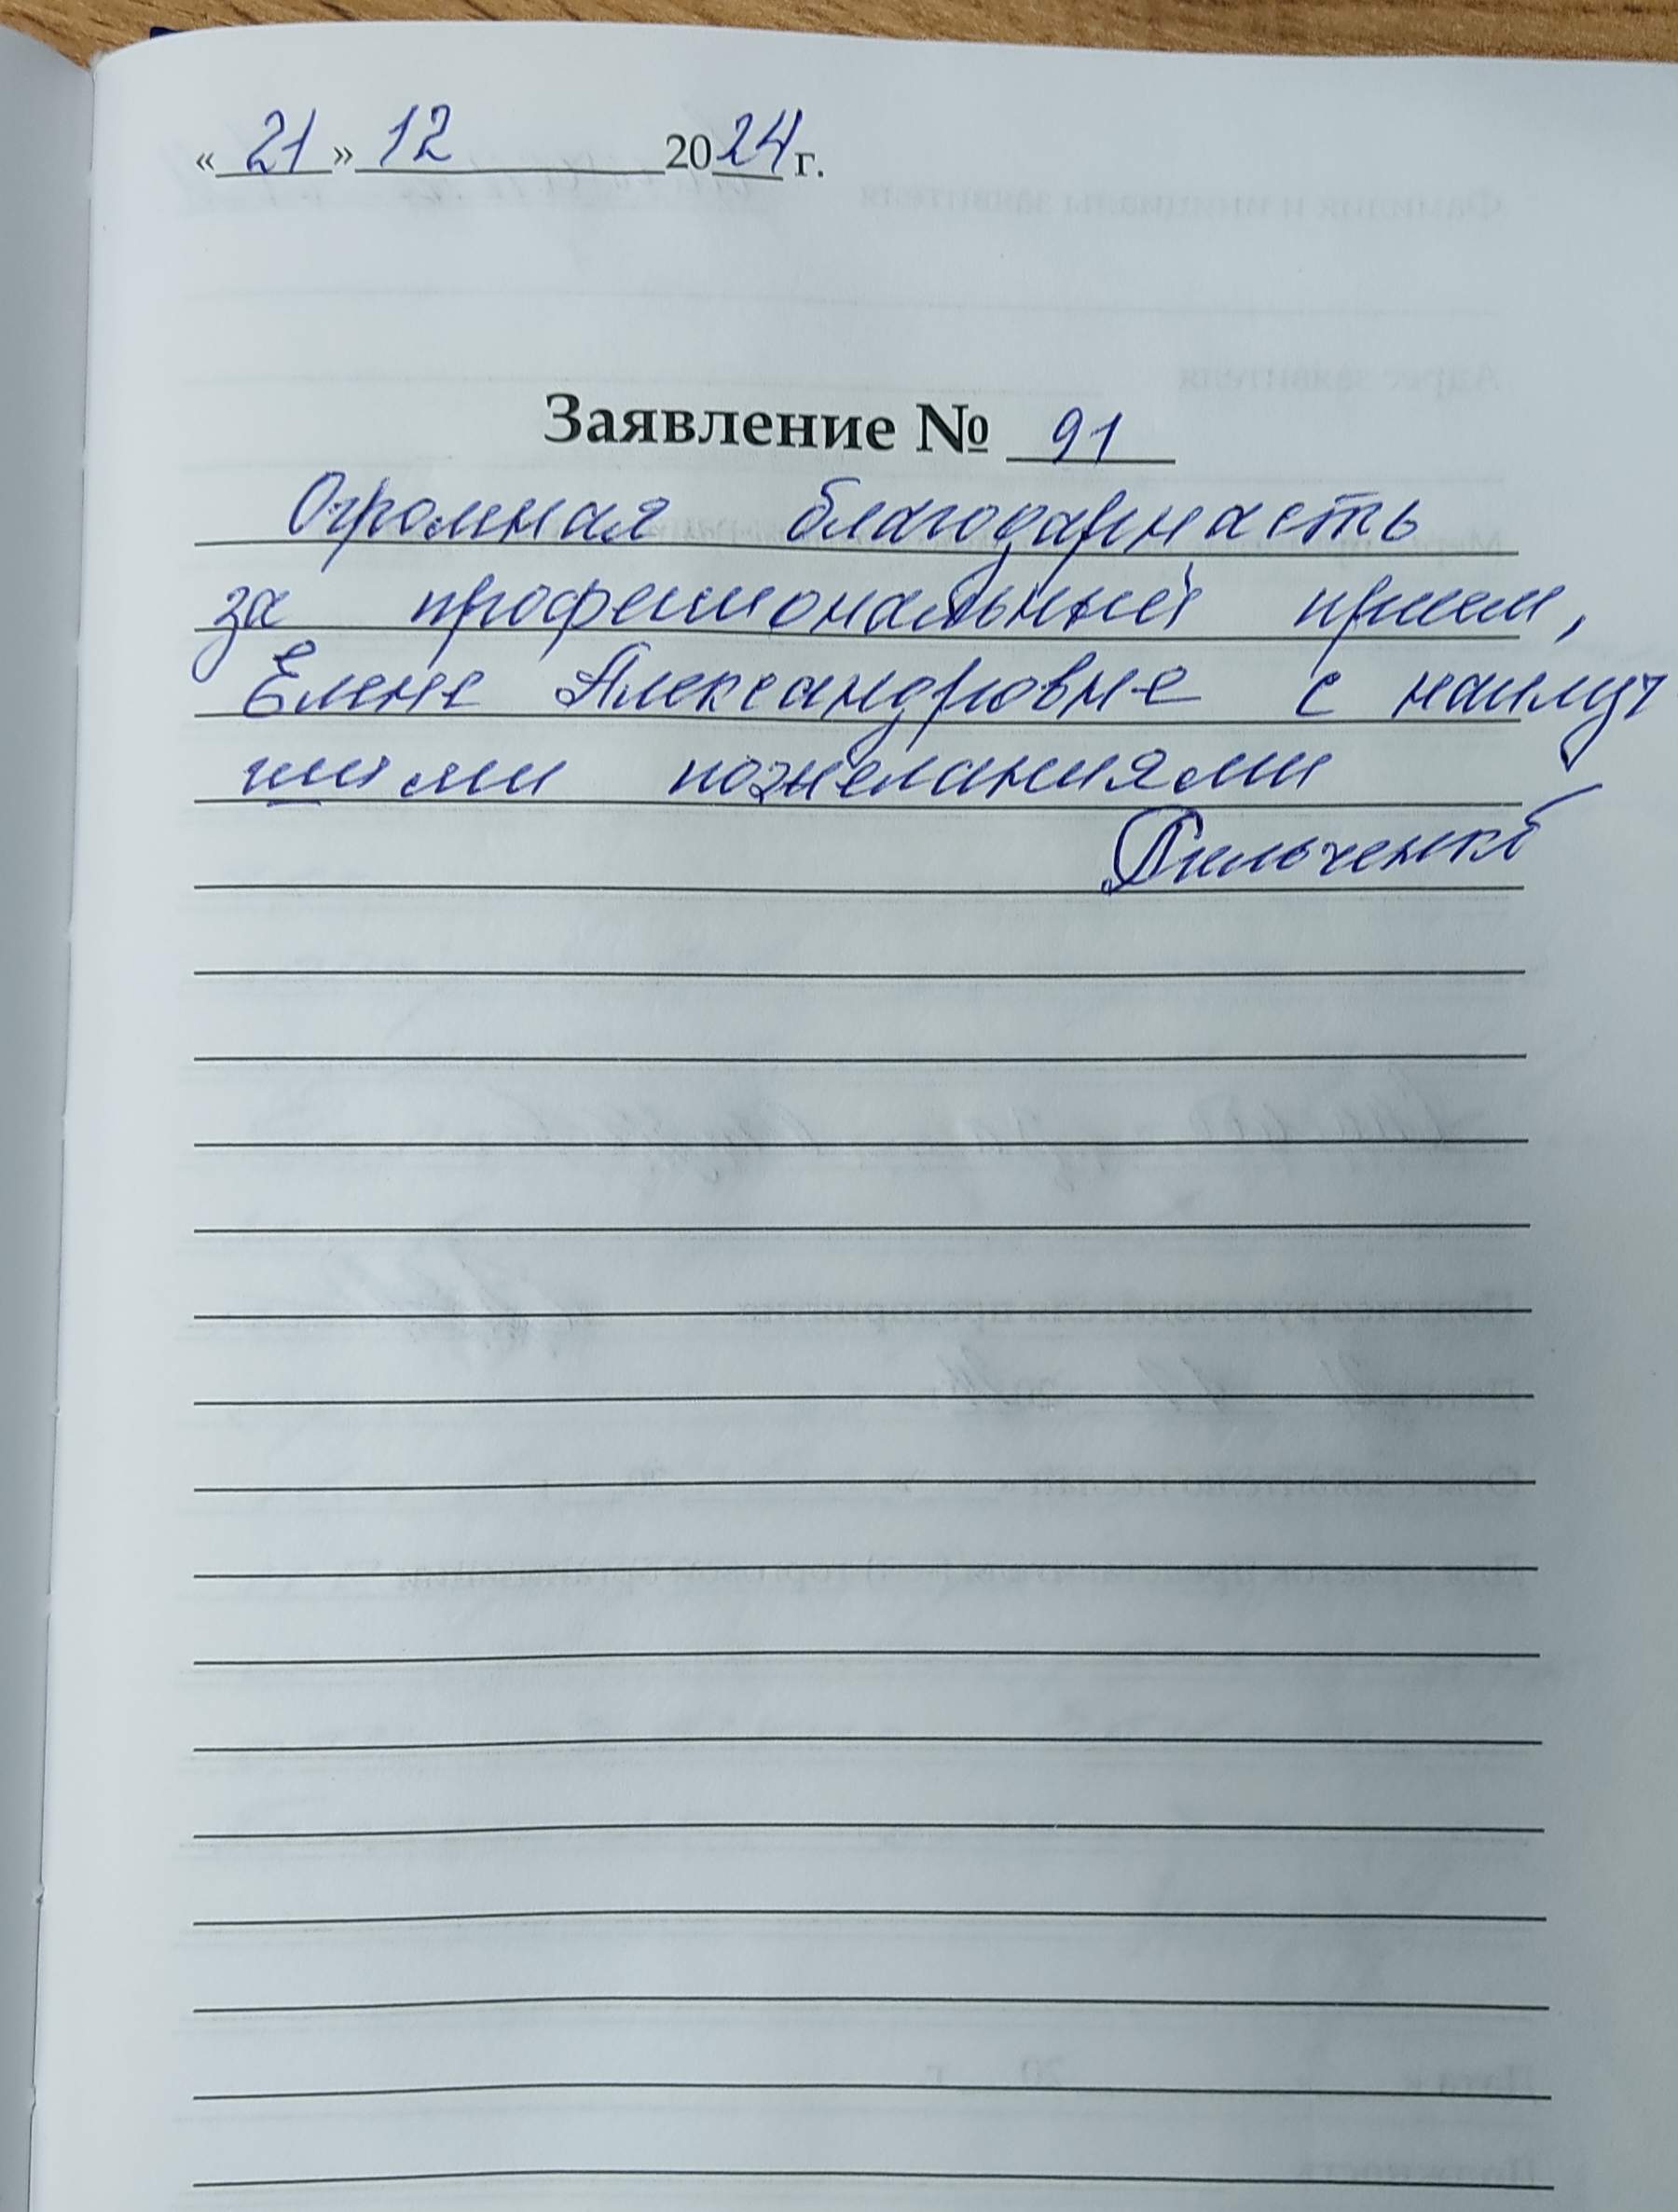 «21» 12 2024 г.
Заявление № 91
Огромная благодарность
за профессиональный прием,
Елене Александровне с наилуч
шими пожеланиями